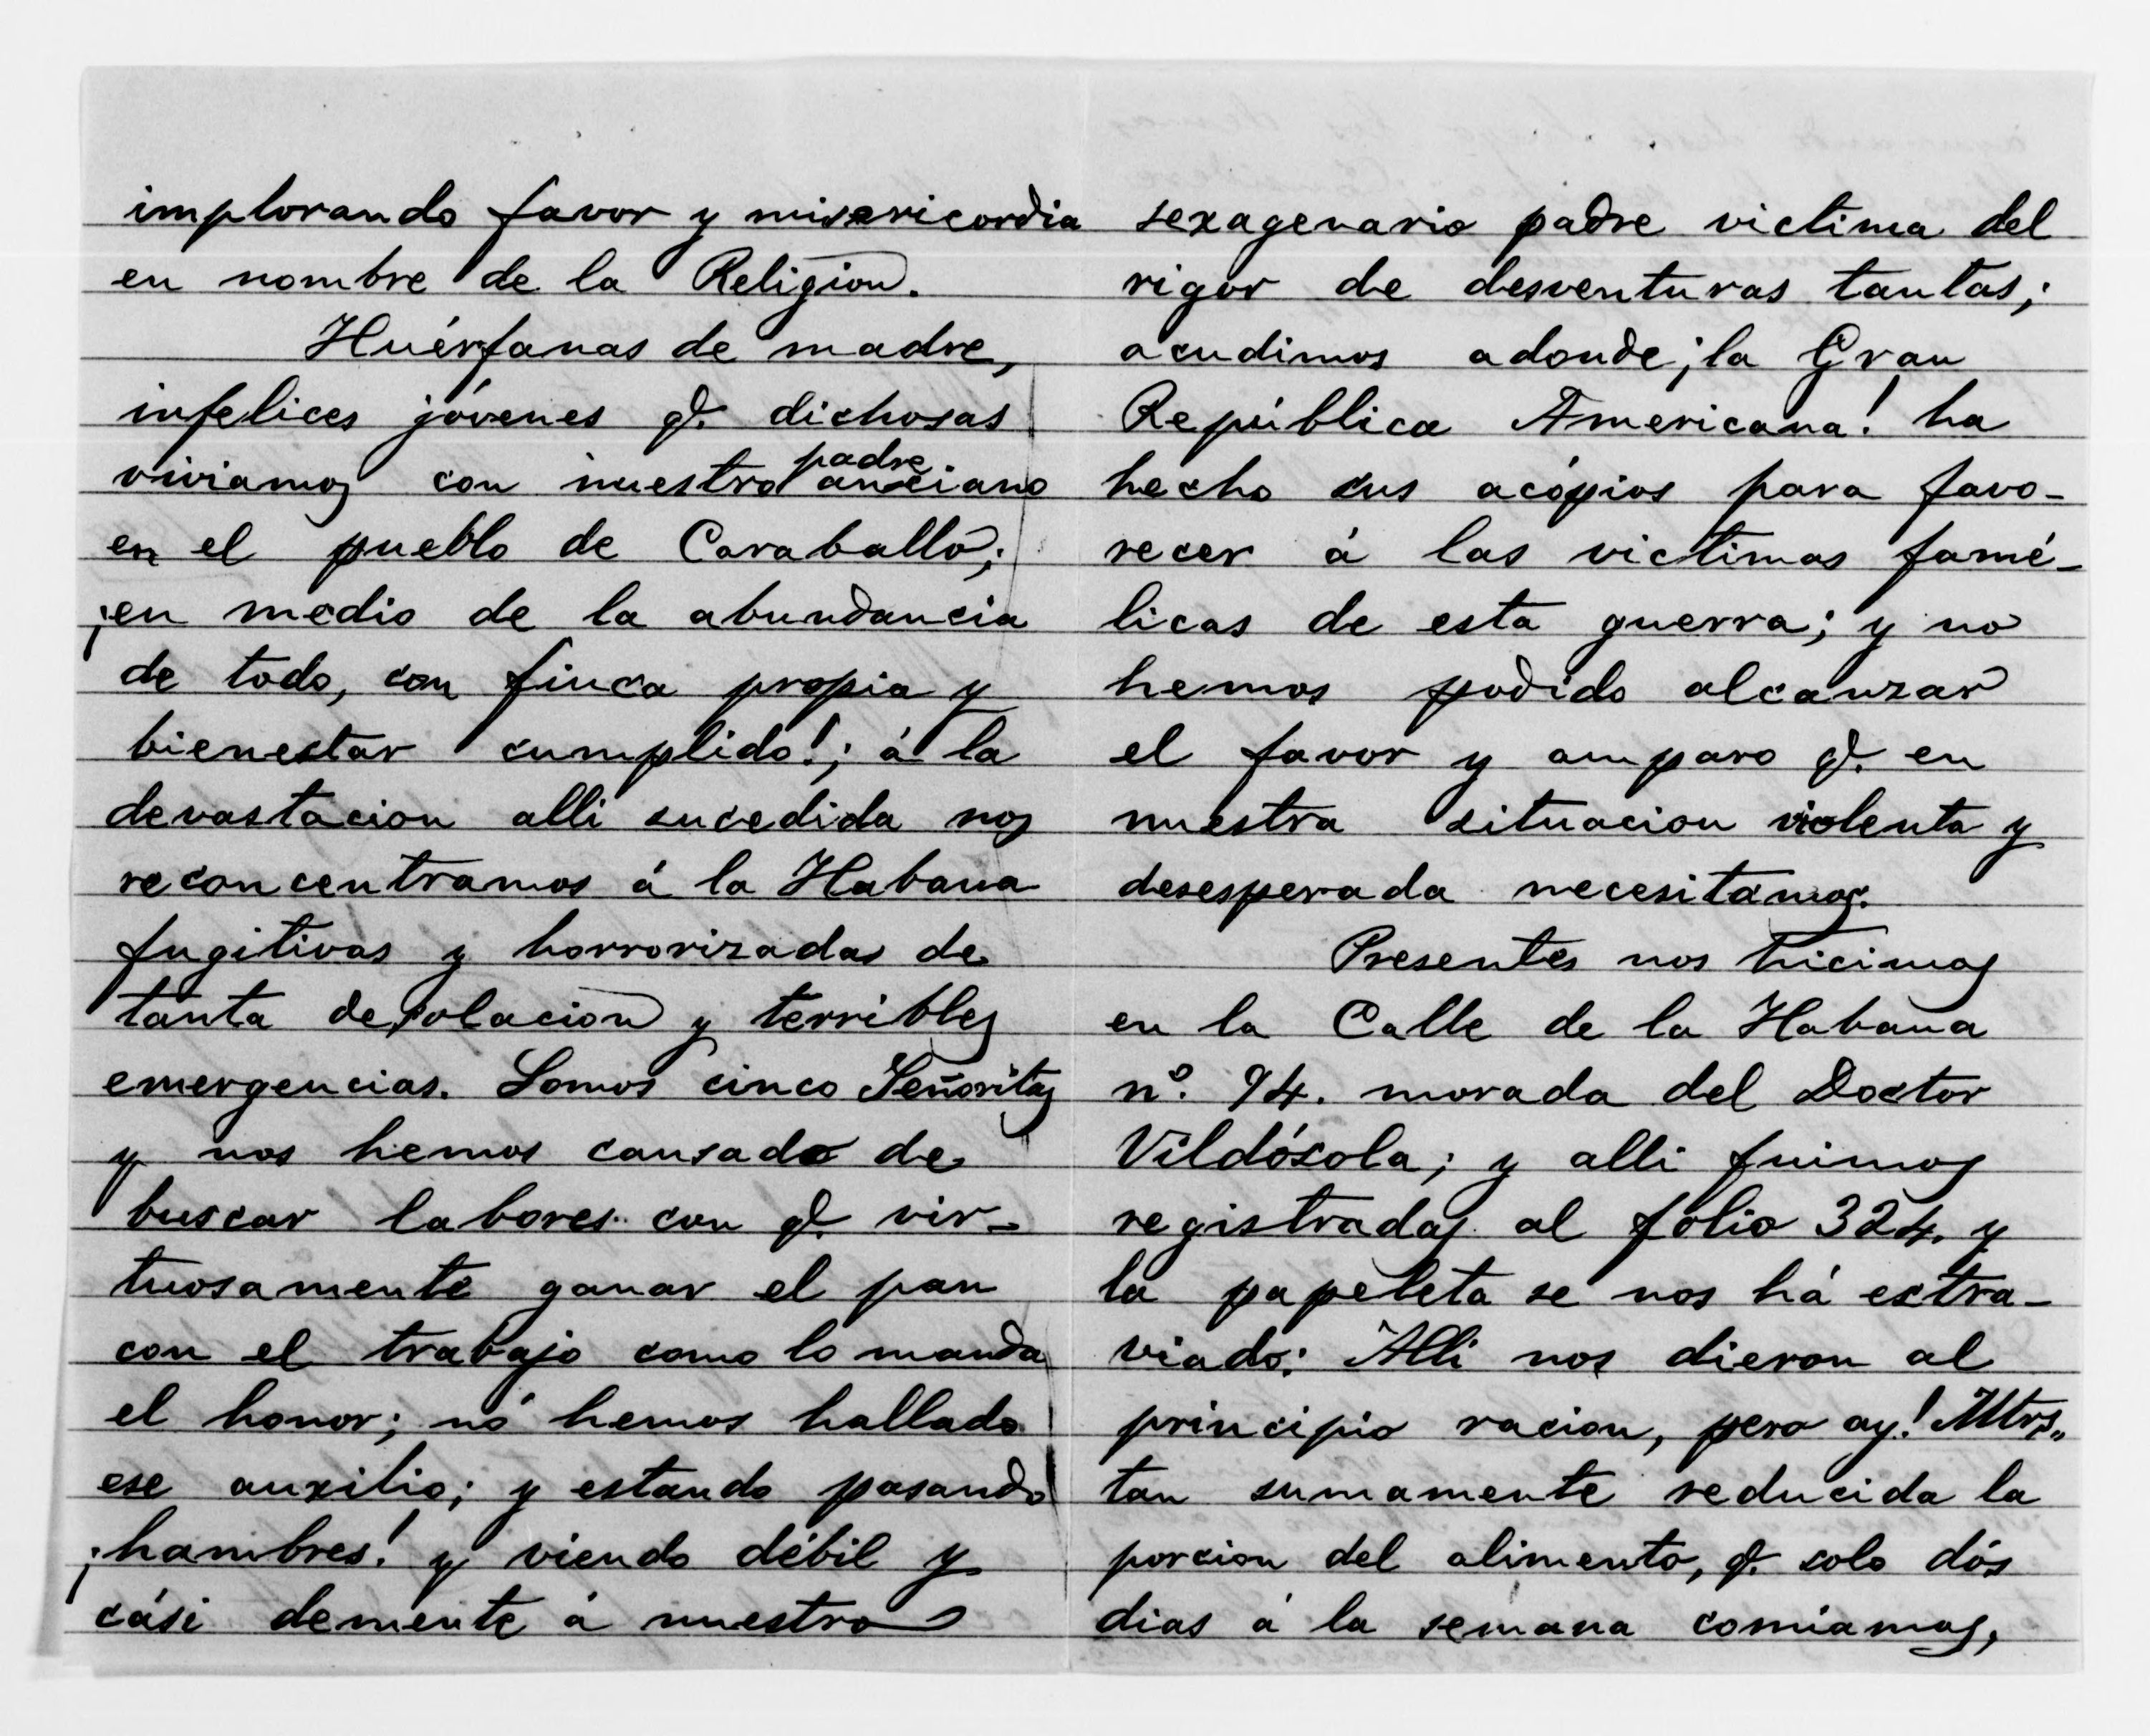 implorando favor y misericordia
en nombre de la Religion.
Huérfanas de madre,
infelices jóvenes q. dichosas
viviamos con nuestro padre anciano
en el pueblo de Caraballo;
¡en medio de la abundancia
de todo, con finca propia y
bienestar cumplido!; á la
devastacion alli sucedida nos
reconcentramos á la Habana
fugitivas y horrorizadas de
tanta desolacion y terribles
emergencias. Somos cinco Señoritas
y nos hemos cansado de
buscar labores con q. vir-
tuosamente ganar el pan
con el trabajo como lo manda
el honor; nó hemos hallado
ese auxilio; y estando pasando
¡hambres! y viendo débil y
cási demente á nuestro
sexagenario padre victima del
rigor de desventuras tantas;
acudimos adonde ¡la Gran
República Americana! ha
hecho sus acópios para favo-
recer á las victimas famé-
licas de esta guerra; y no
hemos podido alcanzar
el favor y amparo q. en
nuestra situacion violenta y
desesperada necesitamos.
Presentes nos hicimos
en la Calle de la Habana
nº. 94. morada del Doctor
Vildósola; y alli fuimos
registradas al folio 324. y
la papeleta se nos há estra-
viado: Alli nos dieron al
principio racion, pero ay! Mtrs.
tan sumamente reducida la
porcion del alimento, q. solo dós
dias á la semana comíamos,